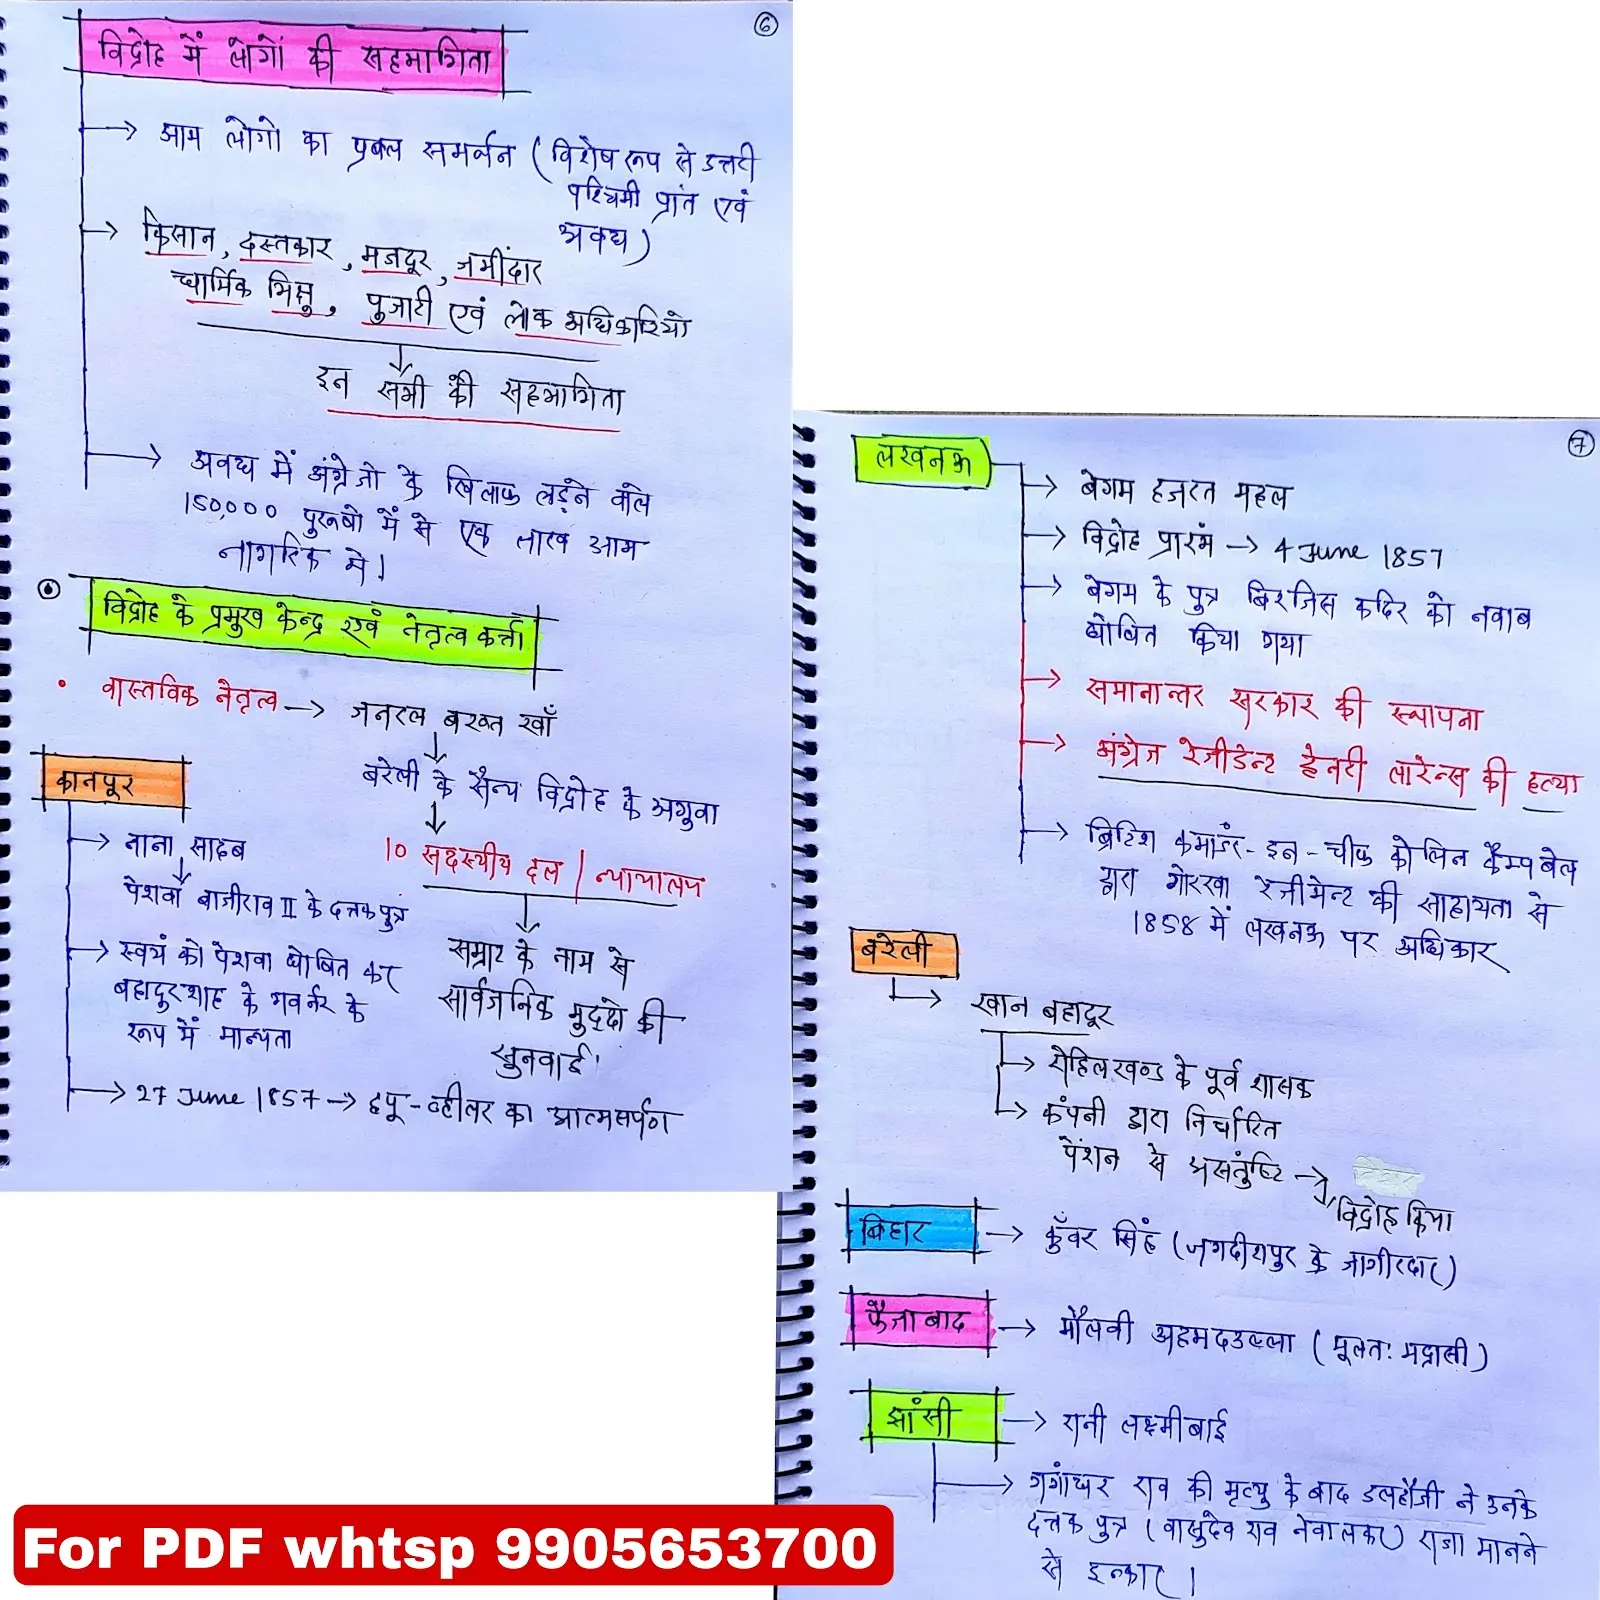 6
विद्रोह में लोगों की सहभागिता
→ आम लोगो का प्रबल समर्थन (विशेष रूप से उत्तरी
पश्चिमी प्रांत एवं
अवध)
→ किसान, दस्तकार, मजदूर, जमींदार
धार्मिक भिक्षु, पुजारी एवं लोक अधिकारियो
↓
इन सभी की सहभागिता
→ अवध में अंग्रेजो के खिलाफ लड़ने वाले
150,000 पुरुषो में से एक लाख आम
नागरिक थे।
विद्रोह के प्रमुख केन्द्र एवं नेतृत्व कर्त्ता
• वास्तविक नेतृत्व → जनरल बख्त खाँ
↓
बरेली के सैन्य विद्रोह के अगुवा
↓
10 सदस्यीय दल / न्यायालय
↓
सम्राट के नाम से
सार्वजनिक मुद्दो की
सुनवाई।
कानपुर
→ नाना साहब
↓
पेशवा बाजीराव II के दत्तक पुत्र
→ स्वयं को पेशवा घोषित कर
बहादुरशाह के गवर्नर के
रूप में मान्यता
→ 27 June 1857 → ह्यू-व्हीलर का आत्मसर्पण
7
लखनऊ
→ बेगम हजरत महल
→ विद्रोह प्रारंभ → 4 June 1857
→ बेगम के पुत्र बिरजिस कदिर को नवाब
घोषित किया गया
→ समानान्तर सरकार की स्थापना
→ अंग्रेज रेजीडेन्ट हेनरी लारेन्स की हत्या
→ ब्रिटिश कमांडर-इन-चीफ कोलिन कैम्पबेल
द्वारा गोरखा रेजीमेन्ट की साहायता से
1858 में लखनऊ पर अधिकार
बरेली
→ खान बहादूर
→ रोहिलखण्ड के पूर्व शासक
→ कंपनी द्वारा निर्धारित
पेंशन से असंतुष्टि →
विद्रोह किया
बिहार → कुँवर सिंह (जगदीशपुर के जागीरदार)
फैजाबाद → मौलवी अहमदउल्ला (मूलत: मद्रासी)
झांसी → रानी लक्ष्मीबाई
→ गंगाधर राव की मृत्यु के बाद डलहौजी ने उनके
दत्तक पुत्र (वासुदेव राव नेवालकर) राजा मानने
से इन्कार।
For PDF whtsp 9905653700